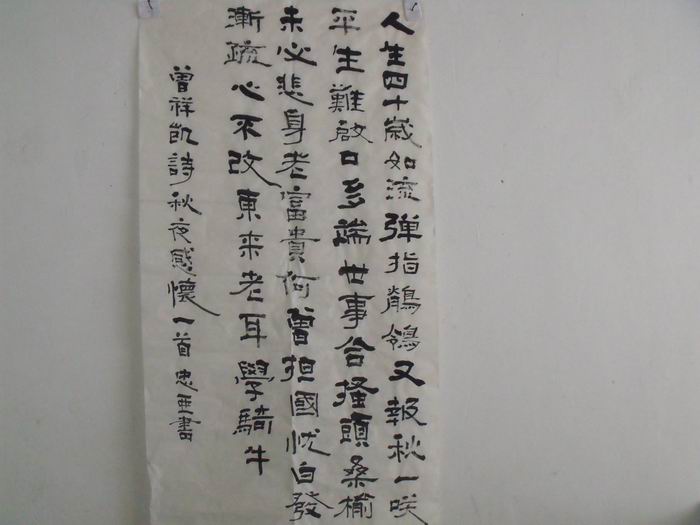 人生四十歲如流彈指鶺鴒又報秋一咲
平生難啟口多端世事合搔頭桑榆
未必悲身老富貴何曾担國忧白發
漸疏心不改東来老耳學騎牛
曾祥凱詩秋夜感懷一首忠亜書